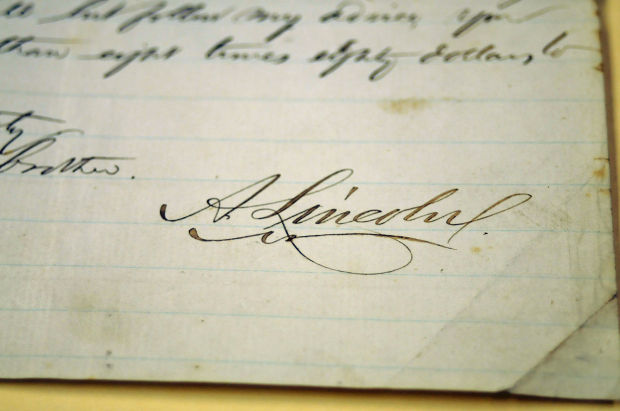 but follow my advice, you
than eight times eighty dollars to
brother.
A. Lincoln.